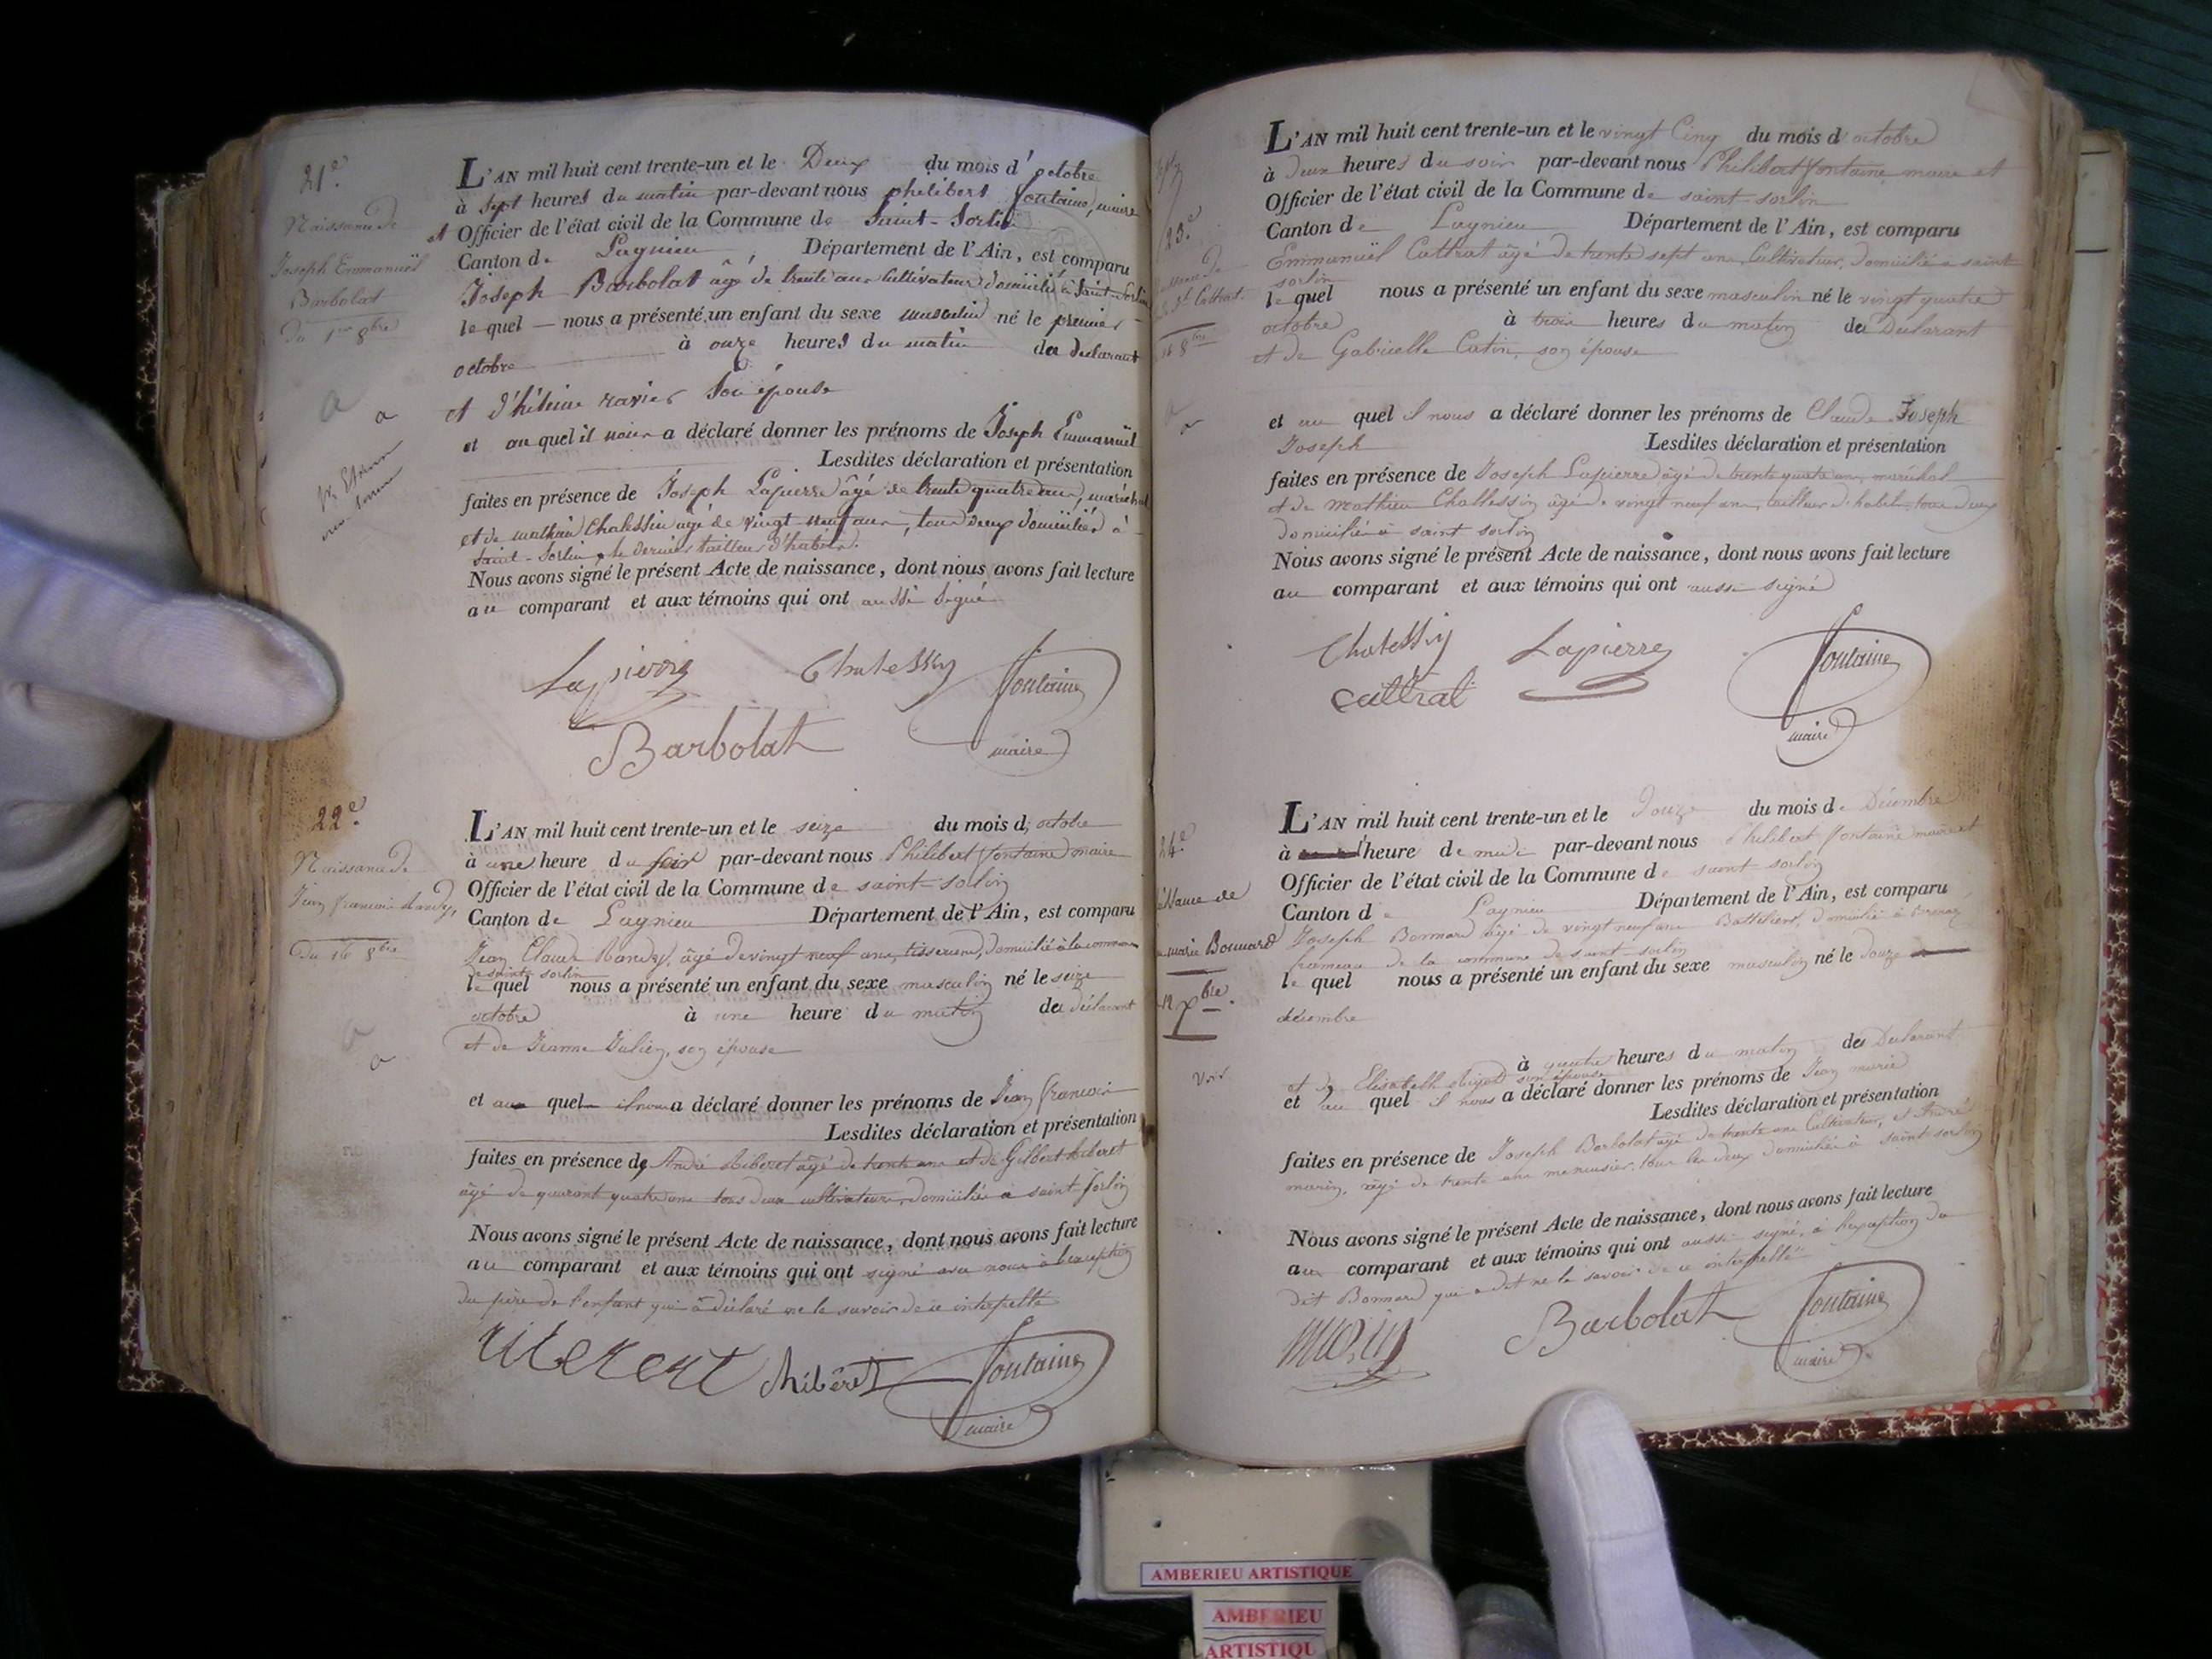 21e.
Naissance de
Joseph Emmanuël
Barbolat
Du 1er 8bre
a
a
L'AN mil huit cent trente-un et le Deux du mois d'octobre
à sept heures du matin par-devant nous philibert fontaine, maire
et Officier de l'état civil de la Commune de Saint-Sorlin
Canton de Lagnieu Département de l'Ain, est comparu
Joseph Barbolat âgé de trente ans Cultivateur domicilié à Saint-Sorlin
lequel nous a présenté un enfant du sexe masculin né le premier
octobre à onze heures du matin du déclarant
et d'hélène ravier son épouse
et auquel il nous a déclaré donner les prénoms de Joseph Emmanuël
Lesdites déclaration et présentation
faites en présence de Joseph Lapierre âgé de trente quatre ans, maréchal
et de mathieu Chatessin agé de vingt neuf ans, tous Deux domiciliés à
Saint-Sorlin, le dernier tailleur d'habits.
Nous avons signé le présent Acte de naissance, dont nous avons fait lecture
au comparant et aux témoins qui ont aussi signé
Lapierre Chatessin fontaine
Barbolat maire
22e.
Naissance de
Jean francois
Du 16 8bre
a
a
L'AN mil huit cent trente-un et le seize du mois d'octobre
à une heure du soir par-devant nous Philibert fontaine maire
Officier de l'état civil de la Commune de saint-sorlin
Canton de Lagnieu Département de l'Ain, est comparu
Jean Claude âgé de vingt neuf ans, tisserand, domicilié à la commune
de saint sorlin
lequel nous a présenté un enfant du sexe masculin né le seize
octobre à une heure du matin du déclarant
et de Jeanne Julien, son épouse
et au quel il nous a déclaré donner les prénoms de Jean francois
Lesdites déclaration et présentation
faites en présence de André Riberet âgé de trente ans et de Gilbert Riberet
âgé de quarant quatre ans tous deux cultivateurs, domiciliés à saint sorlin
Nous avons signé le présent Acte de naissance, dont nous avons fait lecture
au comparant et aux témoins qui ont signé avec nous à l'exception
du père de l'enfant qui a déclaré ne le savoir de ce interpellé
Riberet fontaine
maire
23e.
Cattrat
8bre
a
a
L'AN mil huit cent trente-un et le vingt Cinq du mois d'octobre
à deux heures du soir par-devant nous Philibert fontaine maire et
Officier de l'état civil de la Commune de saint-sorlin
Canton de Lagnieu Département de l'Ain, est comparu
Emmanuel Cattrat âgé de trente sept ans, Cultivateur, domicilié à saint
sorlin
lequel nous a présenté un enfant du sexe masculin né le vingt quatre
octobre à trois heures du matin du Déclarant
et de Gabrielle Catin, son épouse
et au quel il nous a déclaré donner les prénoms de Claude Joseph
Joseph Lesdites déclaration et présentation
faites en présence de Joseph Lapierre âgé de trente quatre ans, maréchal
et de Mathieu Chatessin âgé de vingt neuf ans, tailleur d'habits, tous deux
domiciliés à saint sorlin
Nous avons signé le présent Acte de naissance, dont nous avons fait lecture
au comparant et aux témoins qui ont aussi signé
Chatessin Lapierre fontaine
Cattrat maire
24e.
naissance de
marie Bonnard
12 Xbre.
Voir
L'AN mil huit cent trente-un et le Douze du mois de Décembre
à l'heure de midi par-devant nous Philibert fontaine maire et
Officier de l'état civil de la Commune de saint-sorlin
Canton de Lagnieu Département de l'Ain, est comparu
Joseph Bonnard âgé de vingt neuf ans Battelier, domicilié à
hameau de la commune de saint-sorlin
lequel nous a présenté un enfant du sexe masculin né le Douze
décembre
à quatre heures du matin de Déclarant
et de Elisabeth son épouse
et au quel il nous a déclaré donner les prénoms de Jean marie
Lesdites déclaration et présentation
faites en présence de Joseph Barbolat âgé de trente ans Cultivateur, et André
marin, âgé de trente ans menuisier, tous les deux domiciliés à saint sorlin
Nous avons signé le présent Acte de naissance, dont nous avons fait lecture
au comparant et aux témoins qui ont aussi signé, à l'exception du
dit Bonnard qui a dit ne le savoir de ce interpellé
marin Barbolat fontaine
maire
AMBERIEU ARTISTIQUE
AMBERIEU
ARTISTIQU